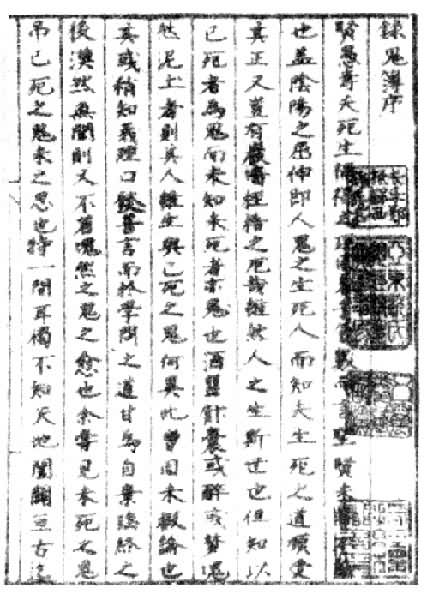 錄鬼簿序
賢愚壽夭死生禍福之理固兼乎氣數而言聖賢未嘗不論
也蓋陰陽之屈伸即人鬼之生死人而知夫生死之道順受
其正又豈有巖墻桎梏之厄哉雖然人之生斯世也但知以
已死者為鬼而未知未死者亦鬼也酒罌飯囊或醉或夢塊
然泥土者則其人雖生與已死之鬼何異此曹固未暇論也
其或稍知義理口發善言而於學問之道甘為自棄臨終之
後漠然無聞則又不若塊然之鬼之愈也余嘗見未死之鬼
吊已死之鬼未之思也特一間耳獨不知天地開闢亘古